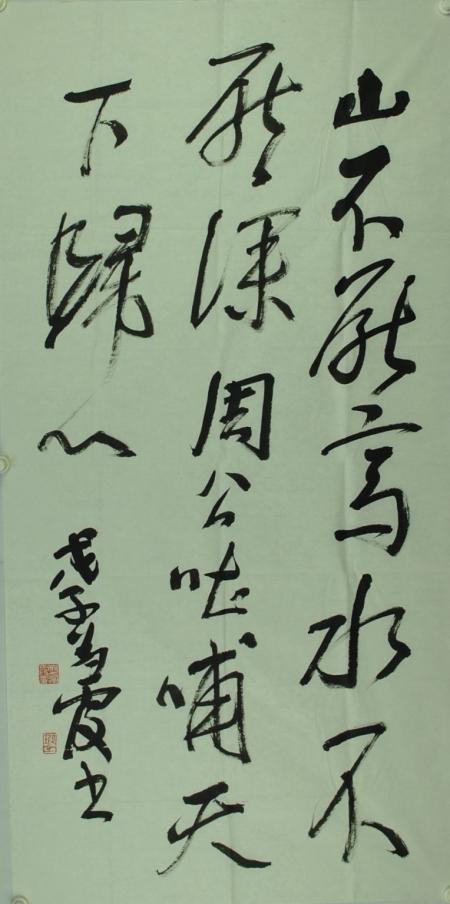 山不厭高水不
厭深周公吐哺天
下歸心
戊子霞书